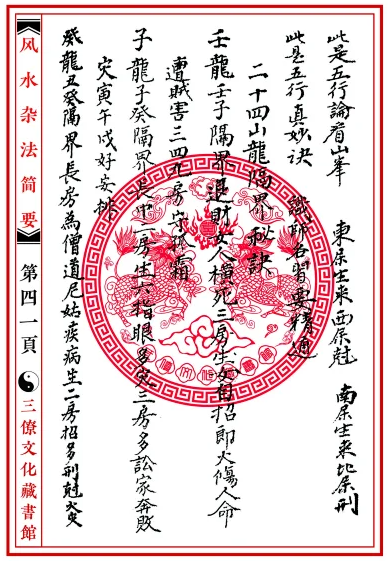 此是五行論看山峯 東屋生來西屋尅 南屋生來北屋刑
此是五行真妙诀 師名習要精通
二十四山龍隔界秘訣
壬龍壬子隔界退財女人橫死三房生女自招郎火傷人命
遭賊害三四九房守孤霜
子龍子癸隔界長中二房生六指眼多灾三房多訟家奔敗
灾寅午戌好安排
癸龍丑癸隔界長房為僧道尼姑疾病生二房招多刑尅火灾
风水杂法简要
第四一頁
三僚文化藏書館